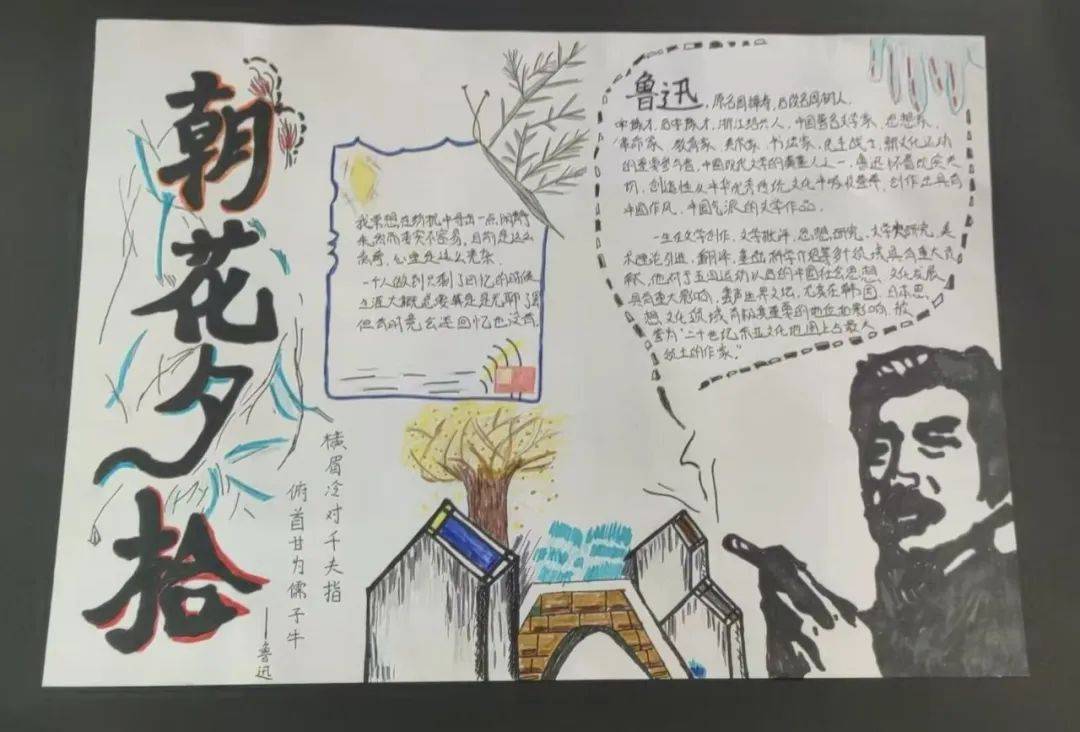 朝花夕拾
横眉冷对千夫指
俯首甘为儒子牛
——鲁迅
我常想在纷扰中寻出一点闲静
来,然而委实不容易。目前是这么
离奇,心里是这么芜杂。
一个人做到只剩了回忆的时候
生涯大概总要算是无聊了罢
但有时竟会连回忆也没有。
鲁迅,原名周樟寿,后改名周树人,
字豫才,浙江绍兴人,中国著名文学家、思想家、
革命家、教育家、美术家、书法家、民主战士,新文化运动
的重要参与者,中国现代文学的奠基人之一。鲁迅怀着
切,创造性从中华优秀传统文化中吸收营养,创作出具有
中国作风、中国气派的文学作品。
一生在文学创作、文学批评、思想研究、文学史研究、美
术理论引进、翻译、基础科学介绍等多个领域具有重大贡
献。他对于五四运动以后的中国社会思想、文化发展
具有重大影响,蜚声世界文坛,尤其在韩国、日本思
想文化领域有极其重要的地位和影响,被
誉为"二十世纪东亚文化地图上占最大
领土的作家。"